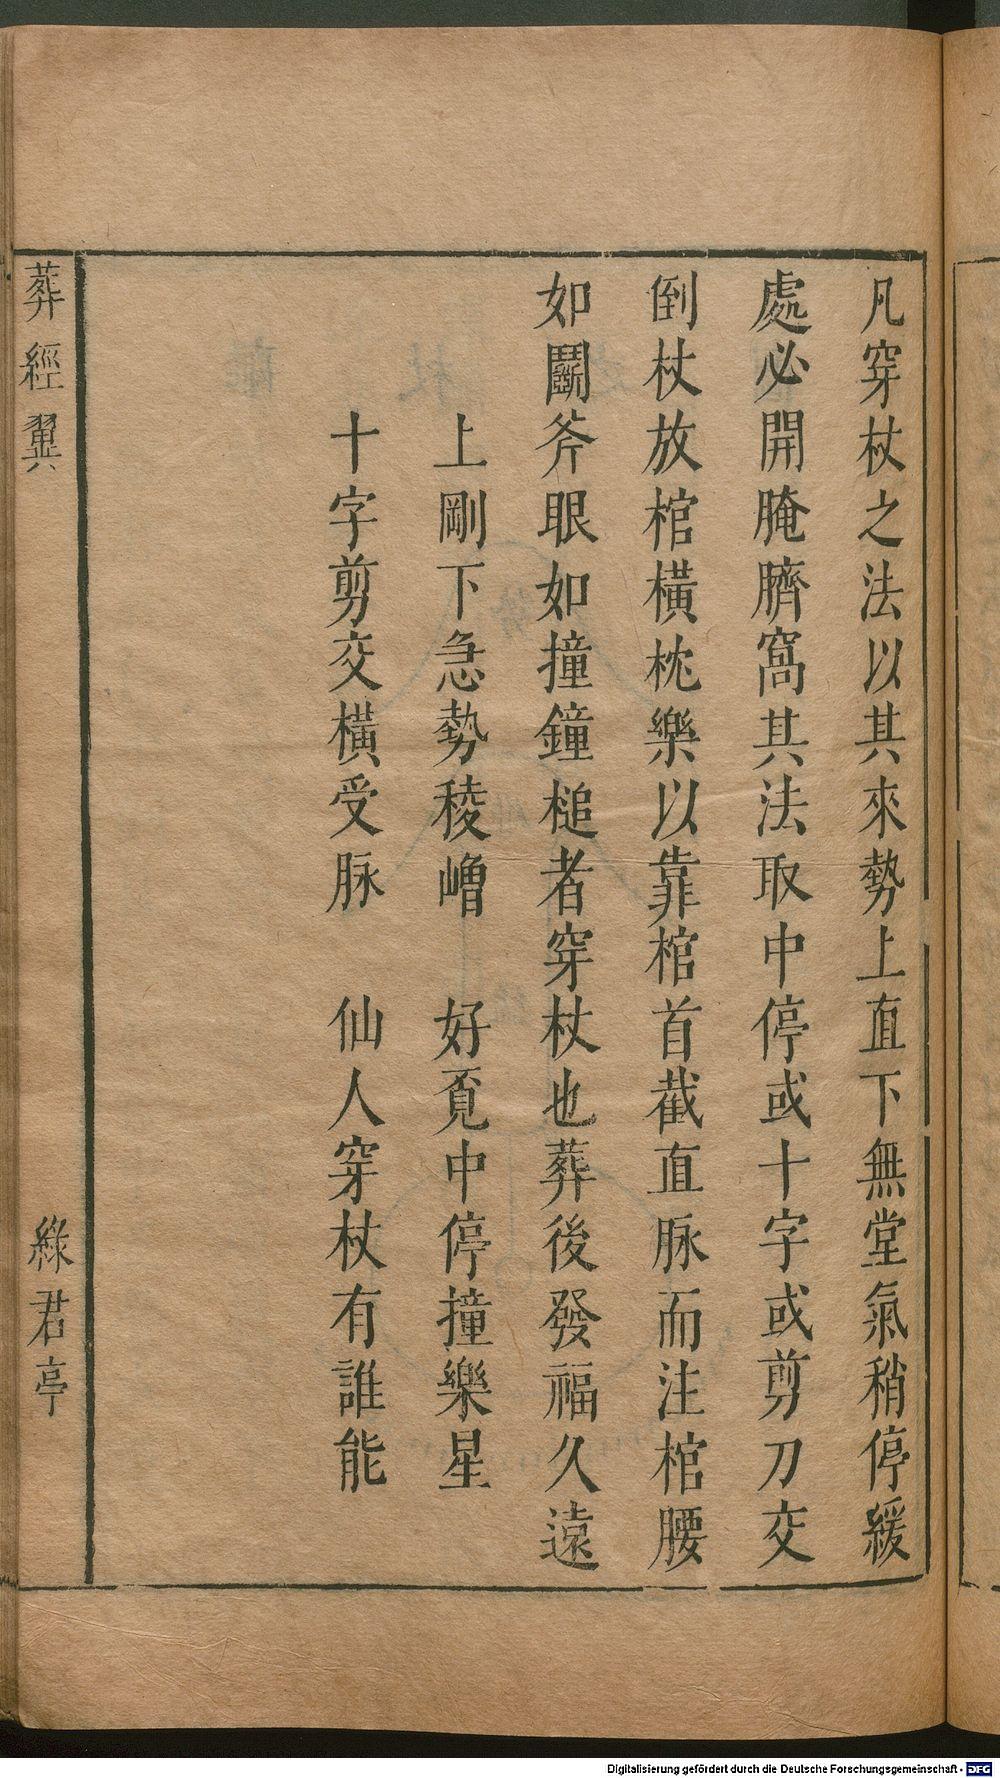 凡穿杖之法以其來勢上直下無堂氣稍停緩
處必開腌臍窩其法取中停或十字或剪刀交
倒杖放棺橫枕樂以靠棺首截直脉而注棺腰
如鬭斧眼如撞鐘槌者穿杖也葬後發福久遠
上剛下急勢稜嶒　好覓中停撞樂星
十字剪交橫受脉　仙人穿杖有誰能
葬經翼
綠君亭
Digitalisierung gefördert durch die Deutsche Forschungsgemeinschaft - DFG